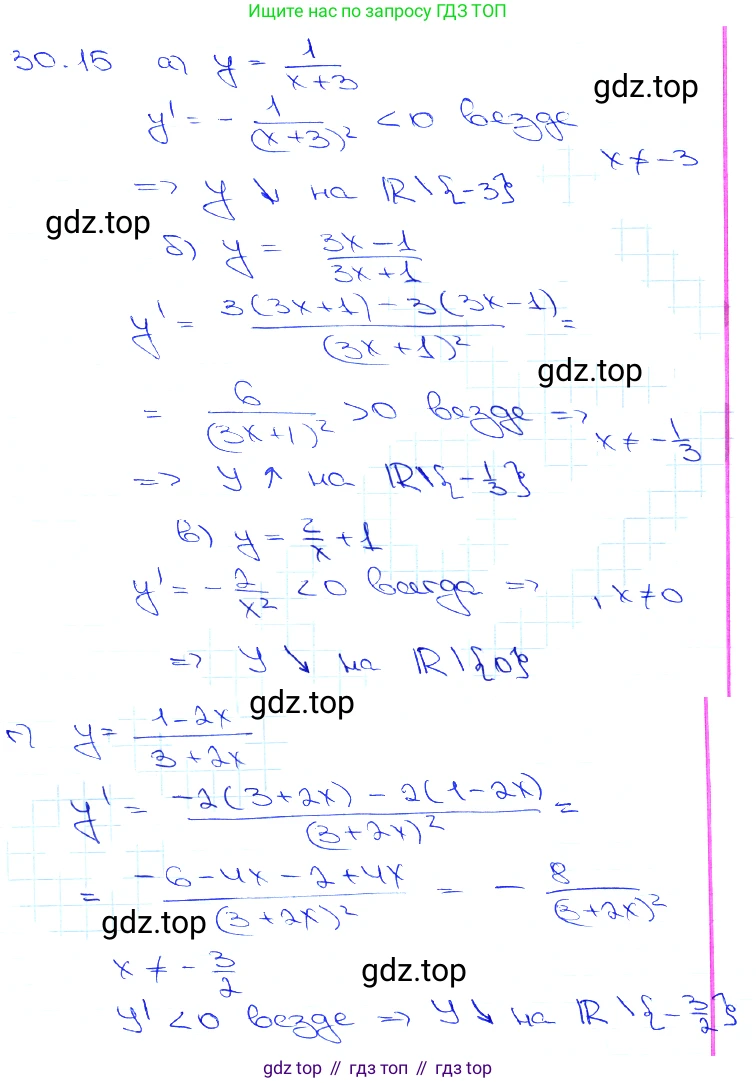 Ищите нас по запросу ГДЗ ТОП
30.15 а) y = 1/(x+3)
gdz.top
y' = - 1/(x+3)² < 0 везде
x ≠ -3
=> y ↘ на ℝ\{-3}
gdz.top
б) y = (3x-1)/(3x+1)
y' = (3(3x+1) - 3(3x-1))/(3x+1)² =
gdz.top
= 6/(3x+1)² > 0 везде =>
x ≠ -1/3
=> y ↑ на ℝ\{-1/3}
в) y = 2/x + 1
y' = - 2/x² < 0 всегда => , x ≠ 0
=> y ↘ на ℝ\{0}
gdz.top
г) y = (1-2x)/(3+2x)
y' = (-2(3+2x) - 2(1-2x))/(3+2x)² =
= (-6-4x-2+4x)/(3+2x)² = - 8/(3+2x)²
gdz.top
x ≠ - 3/2
gdz.top
y' < 0 везде => y ↘ на ℝ\{-3/2}
gdz.top // гдз топ // gdz top